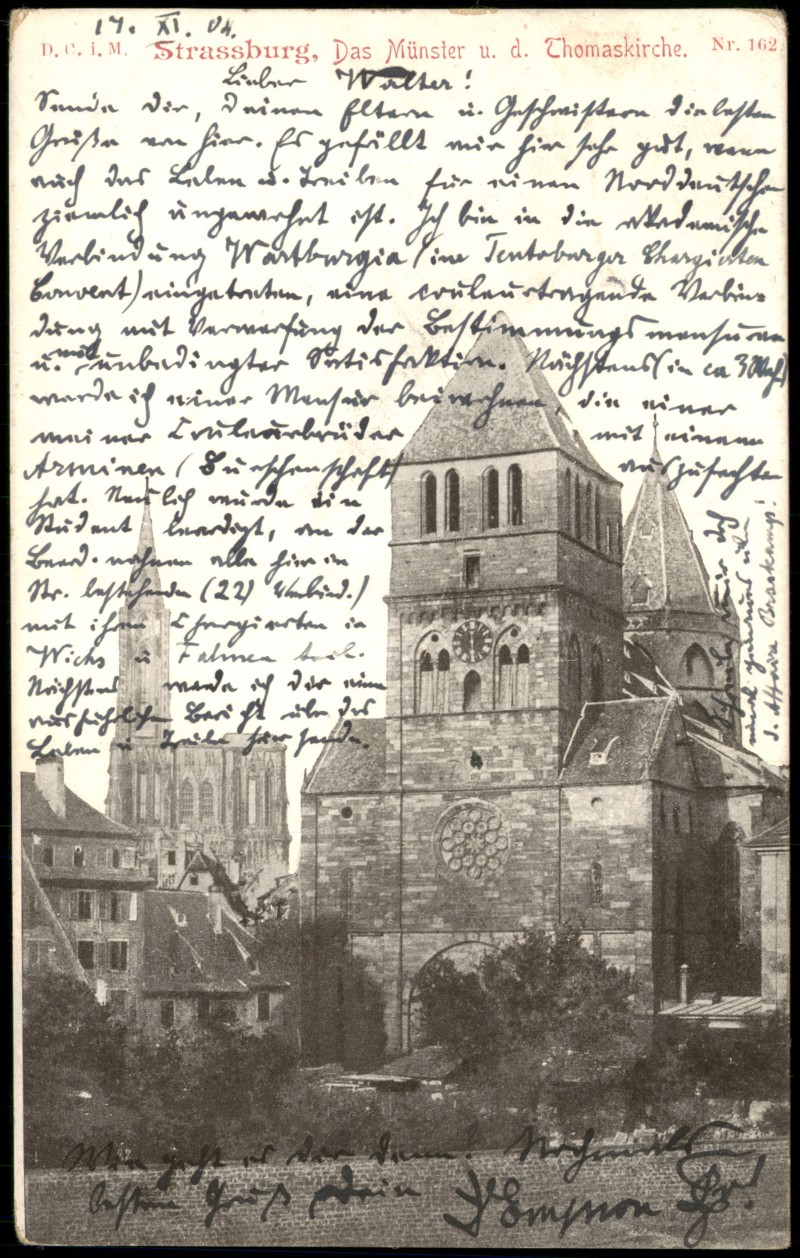 17. XI. 04.
D. C. i. M. Strassburg, Das Münster u. d. Thomaskirche. Nr. 162
Lieber Walter!
Sende Dir, Deinen Eltern u. Geschwistern die besten
Grüße von hier. Es gefällt mir hier sehr gut, wenn
auch das Leben u. Treiben für einen Norddeutschen
ziemlich ungewohnt ist. Ich bin in die akademische
Verbindung Wartburgia (im Teutoburger Chargierten
Convent) eingetreten, eine couleurtragende Verbin-
dung mit Verwerfung der Bestimmungsmensuren
u. mit unbedingter Satisfaktion. Nächstens (in ca 3 Woch.)
werde ich einer Mensur beiwohnen, die einer
meiner Couleurbrüder mit einem
Arminen (Burschenschaft) auszufechten
hat. Neulich wurde ein
Student beerdigt, an der
Beerd. nahmen alle hier in
Str. bestehenden (22) Verbind.
mit ihren Chargierten in
Wichs u Fahnen teil.
Nächstens werde ich Dir einen
ausführlichen Bericht über das
Leben u Treiben hier senden.
Schreibe mir doch
mal genaues über
d. Affaire
Wie geht es Dir denn? Nochmals
besten Gruß Dein